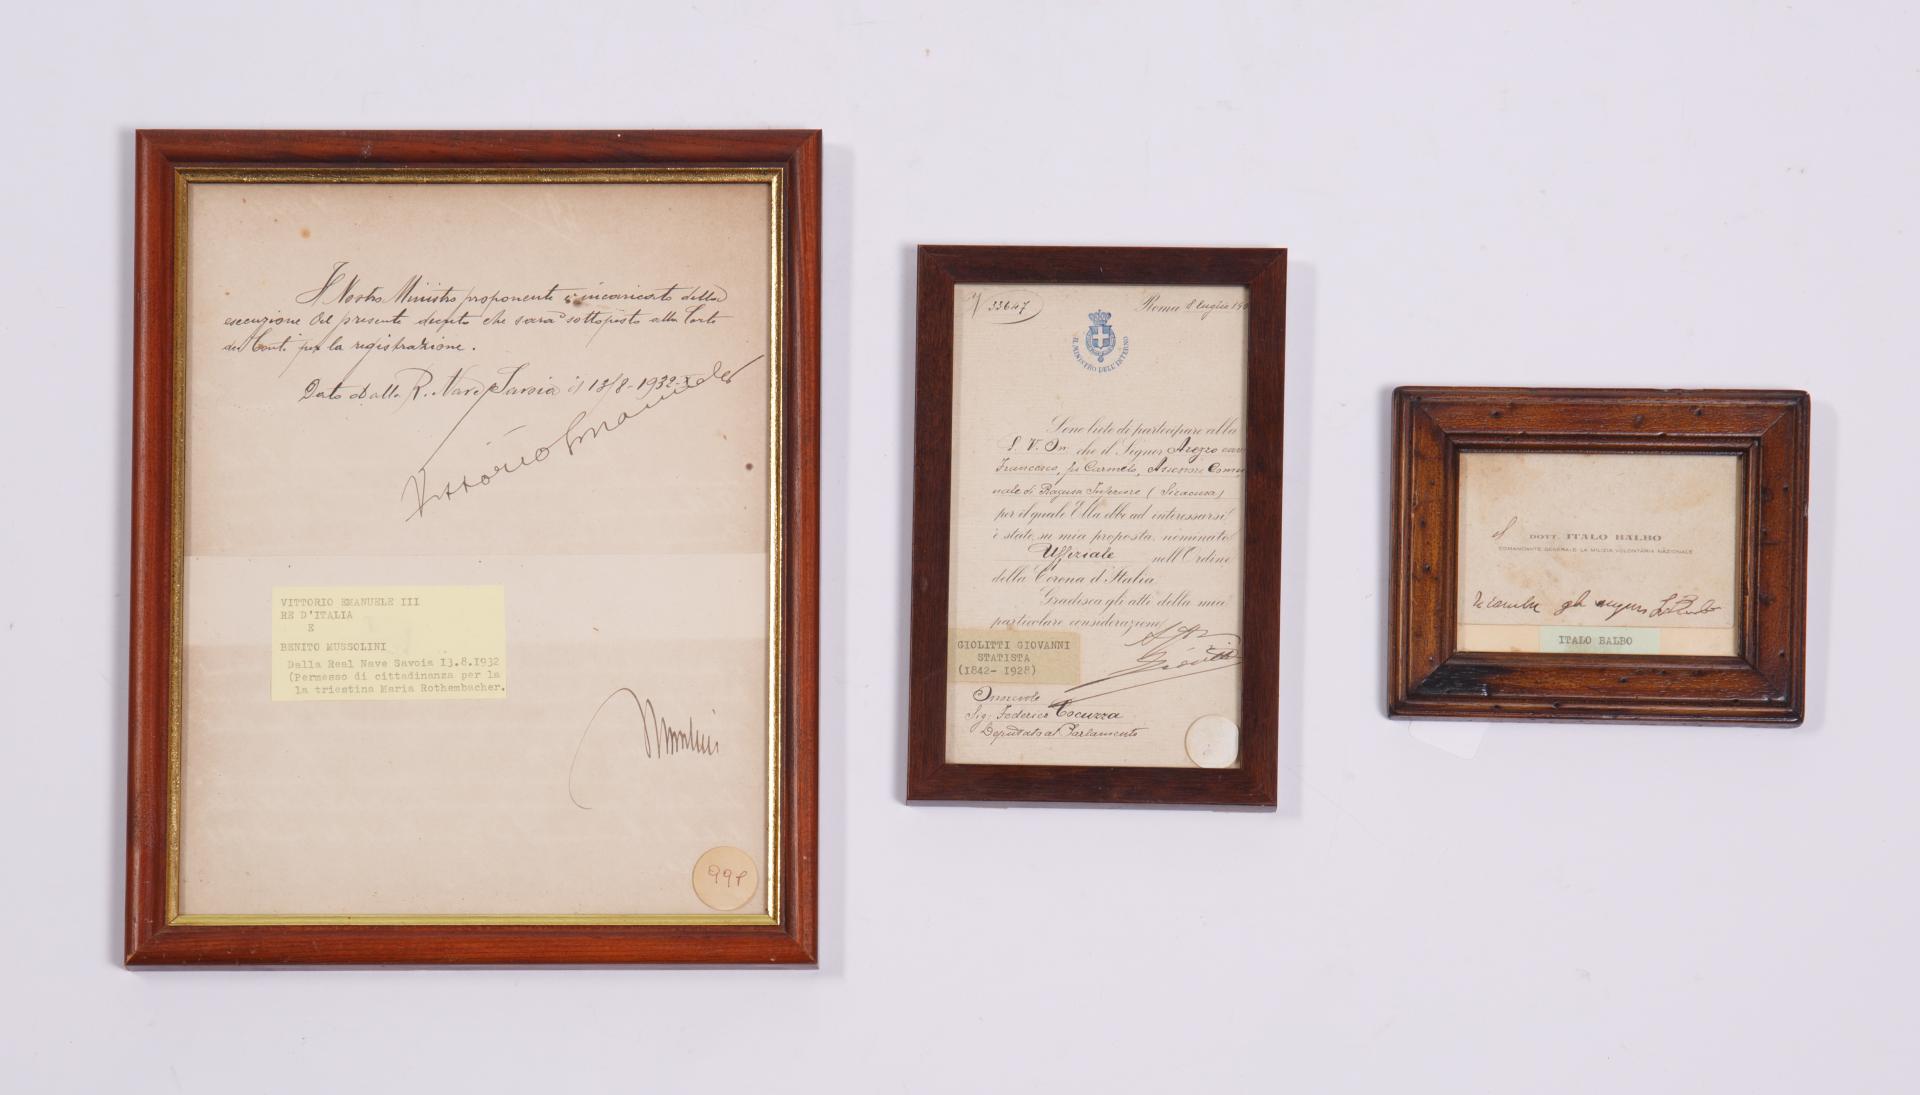 Il Nostro Ministro proponente è incaricato della
esecuzione del presente decreto che sarà sottoposto alla Corte
dei Conti per la registrazione.
Dato dalla R. Nave Savoia il 13/8-1932-X
Vittorio Emanuele
VITTORIO EMANUELE III
RE D'ITALIA
E
BENITO MUSSOLINI
Dalla Real Nave Savoia 13.8.1932
(Permesso di cittadinanza per la
la triestina Maria Rothembacher.
Mussolini
991
33647
Roma 8 Luglio 190
IL MINISTRO DELL'INTERNO
Sono lieto di partecipare alla
S. V. On. che il Signor Arezzo cav.
Francesco, fu Carmelo, Assessore Comu
nale di Ragusa Inferiore (Siracusa)
per il quale Ella ebbe ad interessarsi,
è stato, su mia proposta, nominato
Uffiziale nell'Ordine
della Corona d'Italia.
Gradisca gli atti della mia
particolare considerazione
Giolitti
GIOLITTI GIOVANNI
STATISTA
(1842- 1928)
Onorevole
Sig. Federico Cocuzza
Deputato al Parlamento
DOTT. ITALO BALBO
COMANDANTE GENERALE LA MILIZIA VOLONTARIA NAZIONALE
ricambia gli auguri I Balbo
ITALO BALBO